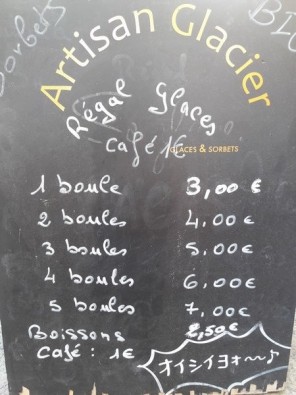 Sorbets
BIO
Artisan Glacier
Régal Glaces
café 1€
GLACES & SORBETS
1 boule 3,00 €
2 boules 4,00€
3 boules 5,00€
4 boules 6,00€
5 boules 7,00€
Boissons 2,50€
Café : 1€
オイシイヨォ～♪